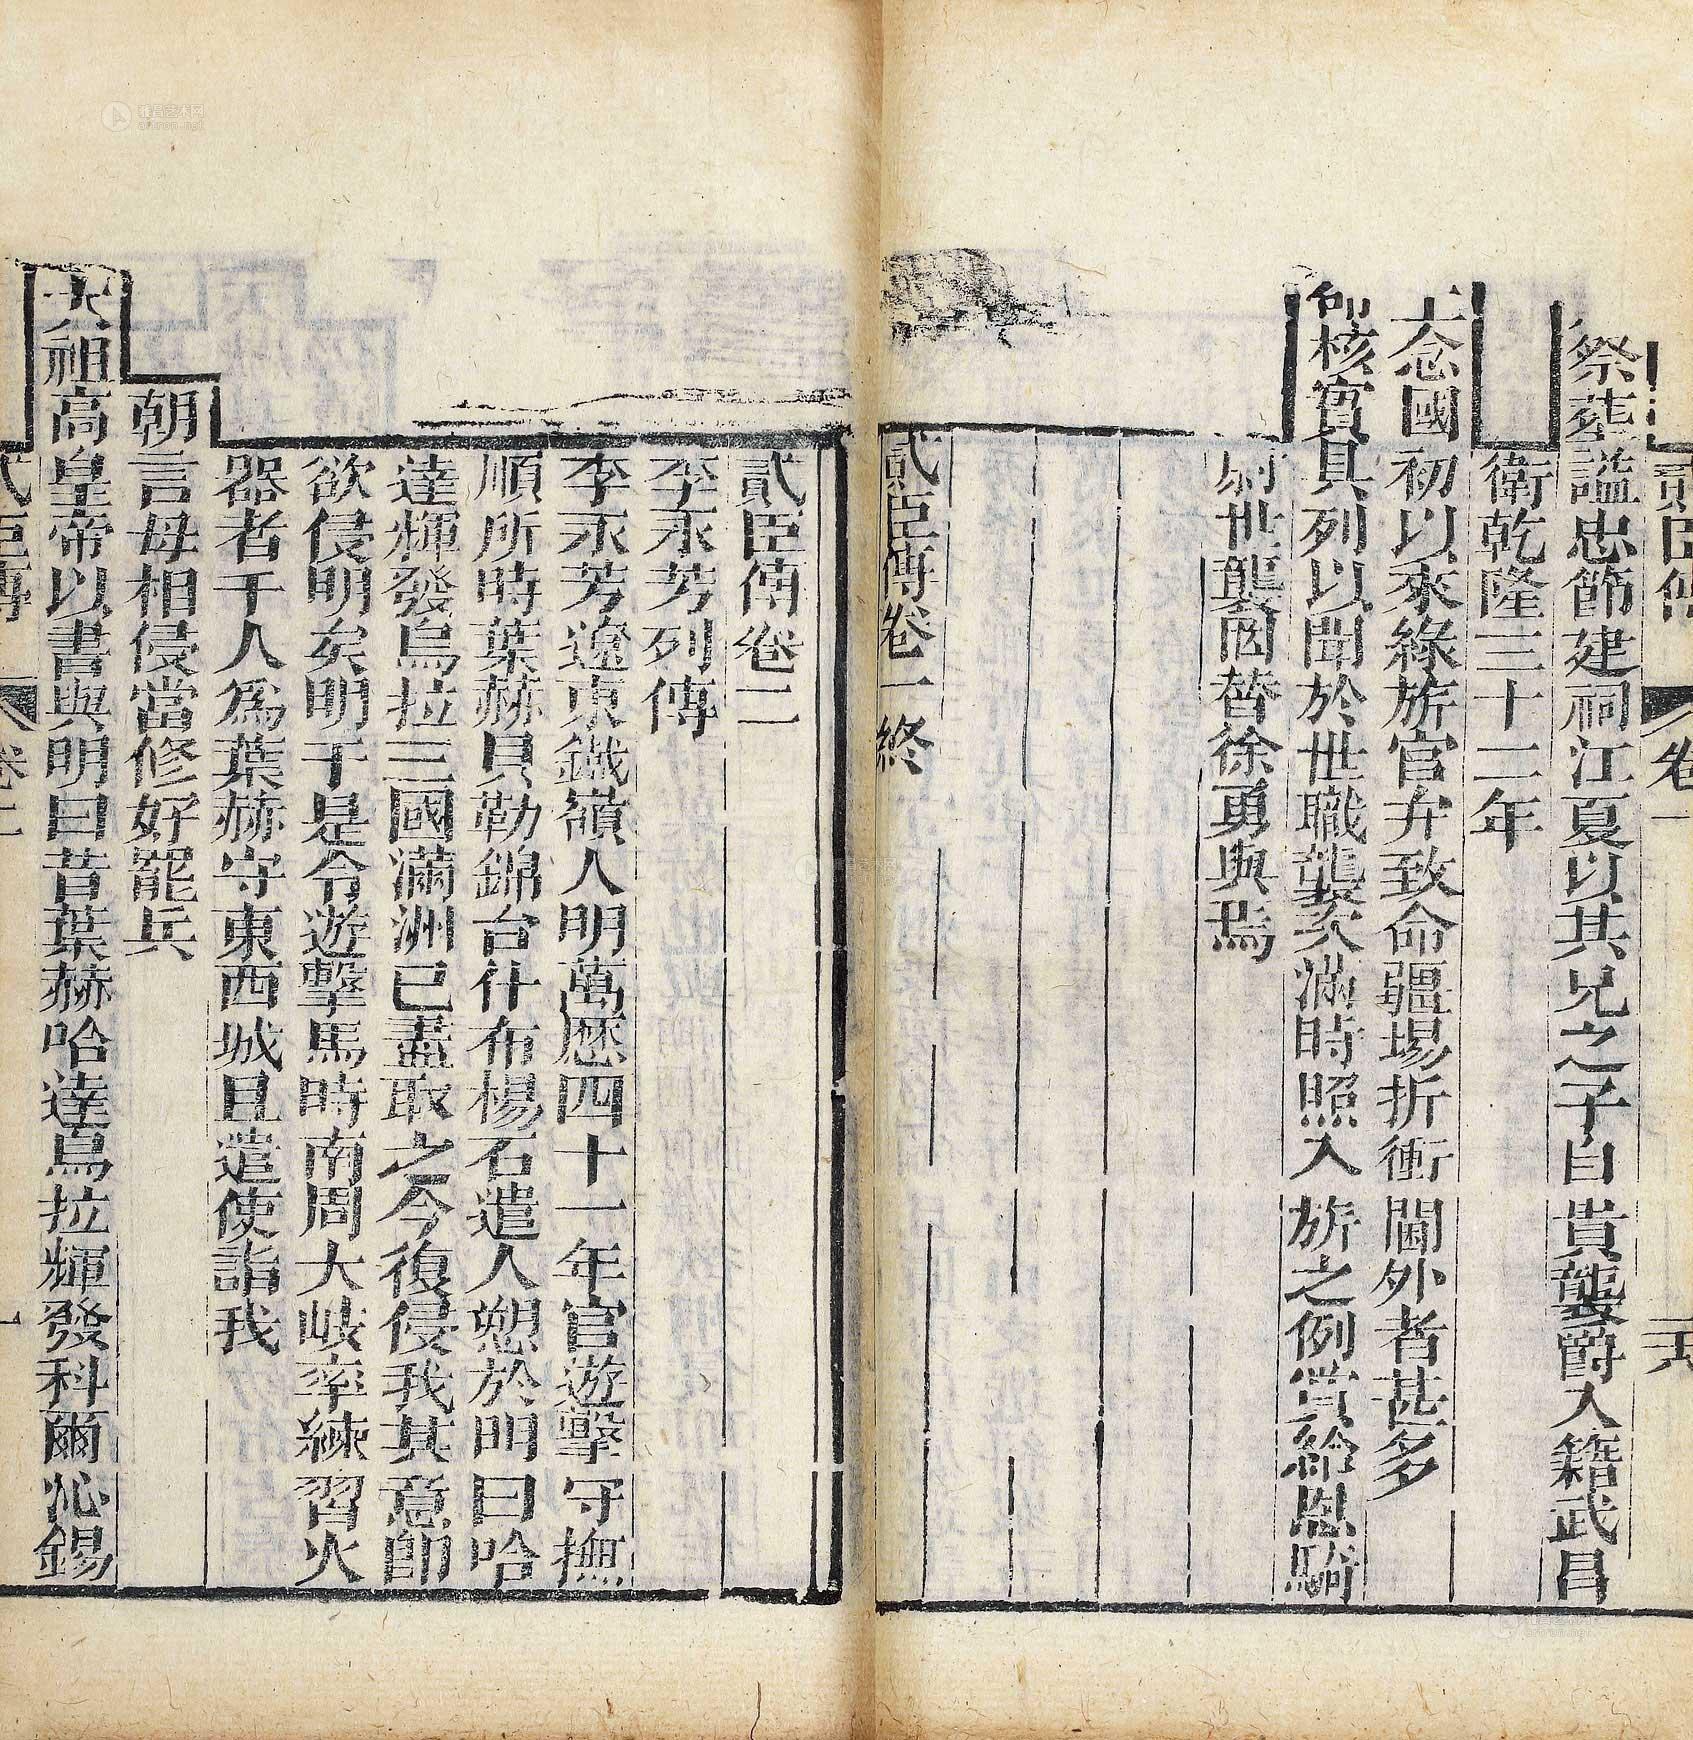 貳臣傳 卷一
祭葬諡忠節建祠江夏以其兄之子自貴襲爵入籍武昌
衛乾隆三十二年
上念國初以來綠旂官弁致命疆場折衝閫外者甚多
命核實具列以聞於世職襲次滿時照入旂之例賞給恩騎
尉世襲罔替徐勇與焉
貳臣傳卷一終
貳臣傳卷二
李永芳列傳
李永芳遼東鐵嶺人明萬歷四十一年官遊擊守撫
順所時葉赫貝勒錦台什布楊石遣人愬於明曰哈
達輝發烏拉三國滿洲已盡取之今復侵我其意卽
欲侵明矣明于是令遊擊馬時南周大岐率練習火
器者千人為葉赫守東西城且遣使詣我
朝言毋相侵當修好罷兵
太祖高皇帝以書與明曰昔葉赫哈達烏拉輝發科爾沁錫
貳臣傳 卷二 一
雅昌艺术网
artron.net